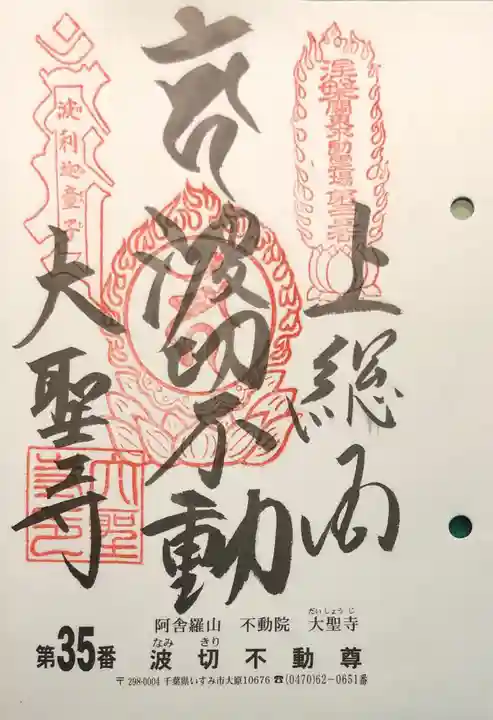 上総国
波切不動
大聖寺
涅槃
関東不動霊場第
波利迦童子
だいしょうじ
阿舎羅山 不動院 大聖寺
なみ きり
第35番 波切不動尊
〒298-0004 千葉県いすみ市大原10676 ☎(0470)62-0651番